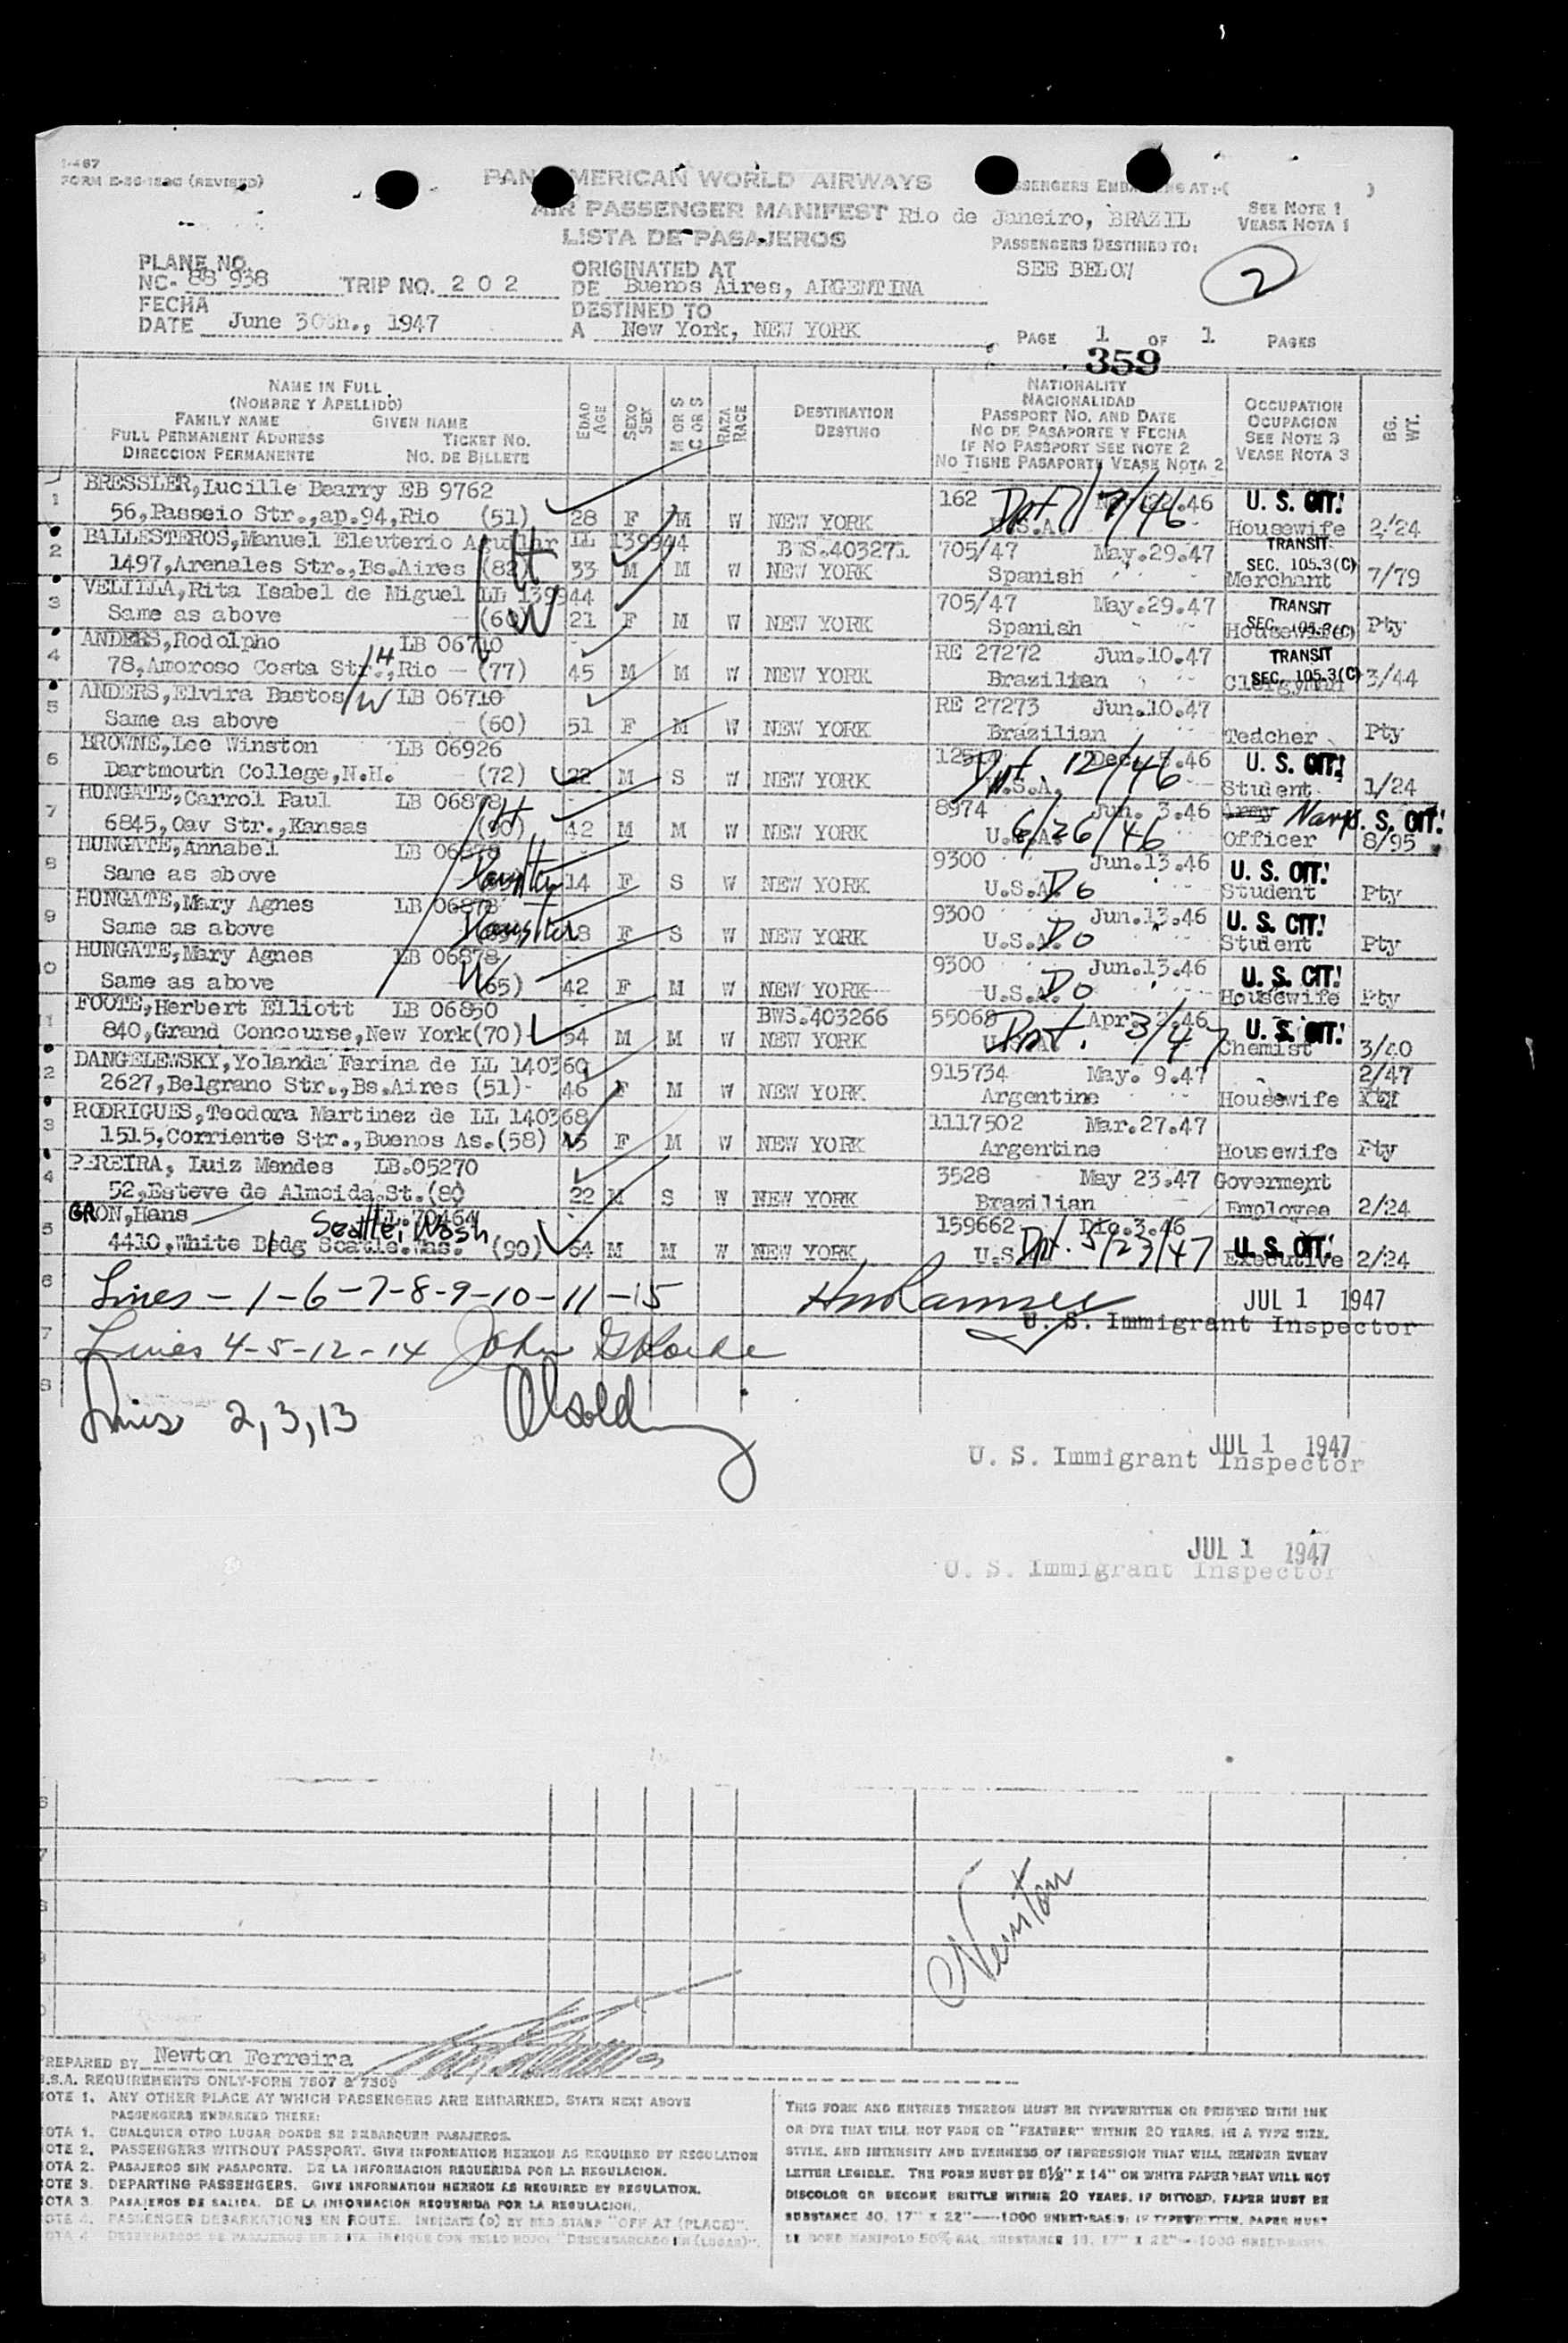 I-467
FORM E-36-183G (REVISED)
PAN AMERICAN WORLD AIRWAYS
AIR PASSENGER MANIFEST
LISTA DE PASAJEROS
PASSENGERS EMBARKING AT:-( )
Rio de Janeiro, BRAZIL
SEE NOTE 1
VEASE NOTA 1
PASSENGERS DESTINED TO:
SEE BELOW
2
PLANE NO.
NC- 88 938 TRIP NO. 2 0 2
ORIGINATED AT
DE Buenos Aires, ARGENTINA
FECHA
DATE June 30th., 1947
DESTINED TO
A New York, NEW YORK
PAGE 1 OF 1 PAGES
359
NAME IN FULL
(NOMBRE Y APELLIDO)
FAMILY NAME GIVEN NAME
FULL PERMANENT ADDRESS TICKET NO.
DIRECCION PERMANENTE NO. DE BILLETE
EDAD AGE
SEXO SEX
M OR S C OR S
RAZA RACE
DESTINATION
DESTINO
NATIONALITY
NACIONALIDAD
PASSPORT NO. AND DATE
NO DE PASAPORTE Y FECHA
IF NO PASSPORT SEE NOTE 2
NO TIENE PASAPORTE VEASE NOTA 2
OCCUPATION
OCUPACION
SEE NOTE 3
VEASE NOTA 3
BG. WT.
1 BRESSLER,Lucille Bearry EB 9762 162 Dpt 7/7/46 .46 U. S. CIT.
56,Passeio Str.,ap.94,Rio (51) 28 F M W NEW YORK U.S.A. Housewife 2/24
2 BALLESTEROS,Manuel Eleuterio Aguilar LL 139944 BWS.403271 705/47 May.29.47 TRANSIT SEC. 105.3(C)
1497,Arenales Str.,Bs.Aires (82) H 33 M M W NEW YORK Spanish Merchant 7/79
3 VELILLA,Rita Isabel de Miguel LL 139944 705/47 May.29.47 TRANSIT SEC. 105.3(C)
Same as above (60) W 21 F M W NEW YORK Spanish Housewife Pty
4 ANDERS,Rodolpho LB 06710 RE 27272 Jun.10.47 TRANSIT SEC. 105.3(C)
78,Amoroso Costa Str.,Rio (77) H 45 M M W NEW YORK Brazilian Clergyman 3/44
5 ANDERS,Elvira Bastos W LB 06710 RE 27273 Jun.10.47
Same as above (60) 51 F M W NEW YORK Brazilian Teacher Pty
6 BROWNE,Lee Winston LB 06926 Dpt 12/46 Dec. .46 U. S. CIT.
Dartmouth College,N.H. (72) 22 M S W NEW YORK U.S.A. Student 1/24
7 HUNGATE,Carrol Paul LB 06878 H 8974 Jun. 3.46 Army Navy U. S. CIT.
6845,Oav Str.,Kansas (90) 42 M M W NEW YORK U.S.A. 6/26/46 Officer 8/95
8 HUNGATE,Annabel LB 06878 9300 Jun.13.46 U. S. CIT.
Same as above Daughter 14 F S W NEW YORK U.S.A. Do Student Pty
9 HUNGATE,Mary Agnes LB 06878 9300 Jun.13.46 U. S. CIT.
Same as above Daughter 8 F S W NEW YORK U.S.A. Do Student Pty
0 HUNGATE,Mary Agnes LB 06878 9300 Jun.13.46 U. S. CIT.
Same as above W (65) 42 F M W NEW YORK U.S.A. Do Housewife Pty
1 FOOTE,Herbert Elliott LB 06850 BWS.403266 55068 Apr. 2.46 U. S. CIT.
840,Grand Concourse,New York(70) 54 M M W NEW YORK U.S.A. Dpt. 3/47 Chemist 3/40
2 DANGELEWSKY,Yolanda Farina de LL 140360 915734 May. 9.47 2/47
2627,Belgrano Str.,Bs.Aires (51) 46 F M W NEW YORK Argentine Housewife
3 RODRIGUES,Teodora Martinez de LL 140368 1117502 Mar.27.47
1515,Corriente Str.,Buenos As.(58) 45 F M W NEW YORK Argentine Housewife Pty
4 PEREIRA, Luiz Mendes LB.05270 3528 May 23.47 Goverment
52,Esteve de Almeida.St.(80 22 M S W NEW YORK Brazilian Employee 2/24
5 GRON,Hans LL.70464 Seattle, Wash 159662 Dic.3.46 U. S. CIT.
4410,White Bldg Seatle.Was. (90) 64 M M W NEW YORK U.S. Dpt. 3/23/47 Executive 2/24
6 Lines - 1-6-7-8-9-10-11-15 JUL 1 1947
U. S. Immigrant Inspector
7 Lines 4-5-12-14 John
8
Lines 2,3,13
JUL 1 1947
U. S. Immigrant Inspector
JUL 1 1947
U. S. Immigrant Inspector
6
7
8
9
0
Newton
PREPARED BY Newton Ferreira
U.S.A. REQUIREMENTS ONLY-FORM 7507 & 7509
NOTE 1. ANY OTHER PLACE AT WHICH PASSENGERS ARE EMBARKED, STATE NEXT ABOVE
PASSENGERS EMBARKED THERE:
NOTA 1. CUALQUIER OTRO LUGAR DONDE SE EMBARQUEN PASAJEROS.
NOTE 2. PASSENGERS WITHOUT PASSPORT. GIVE INFORMATION HEREON AS REQUIRED BY REGULATION
NOTA 2. PASAJEROS SIN PASAPORTE. DE LA INFORMACION REQUERIDA POR LA REGULACION.
NOTE 3. DEPARTING PASSENGERS. GIVE INFORMATION HEREON AS REQUIRED BY REGULATION.
NOTA 3. PASAJEROS DE SALIDA. DE LA INFORMACION REQUERIDA POR LA REGULACION.
NOTE 4. PASSENGER DEBARKATIONS EN ROUTE. INDICATE (D) BY RED STAMP "OFF AT (PLACE)".
NOTA 4. DESEMBARCOS DE PASAJEROS EN RUTA INDIQUE CON SELLO ROJO: "DESEMBARCADO EN (LUGAR)".
THIS FORM AND ENTRIES THEREON MUST BE TYPEWRITTEN OR PRINTED WITH INK
OR DYE THAT WILL NOT FADE OR "FEATHER" WITHIN 20 YEARS, IN A TYPE SIZE,
STYLE, AND INTENSITY AND EVENNESS OF IMPRESSION THAT WILL RENDER EVERY
LETTER LEGIBLE. THE FORM MUST BE 8½" X 14" ON WHITE PAPER THAT WILL NOT
DISCOLOR OR BECOME BRITTLE WITHIN 20 YEARS. IF DITTOED, PAPER MUST BE
SUBSTANCE 40, 17" X 22"—1000 SHEET-BASIS; IF TYPEWRITTEN, PAPER MUST
BE BOND MANIFOLD 50% RAG, SUBSTANCE 18, 17" X 22"—1000 SHEET-BASIS.